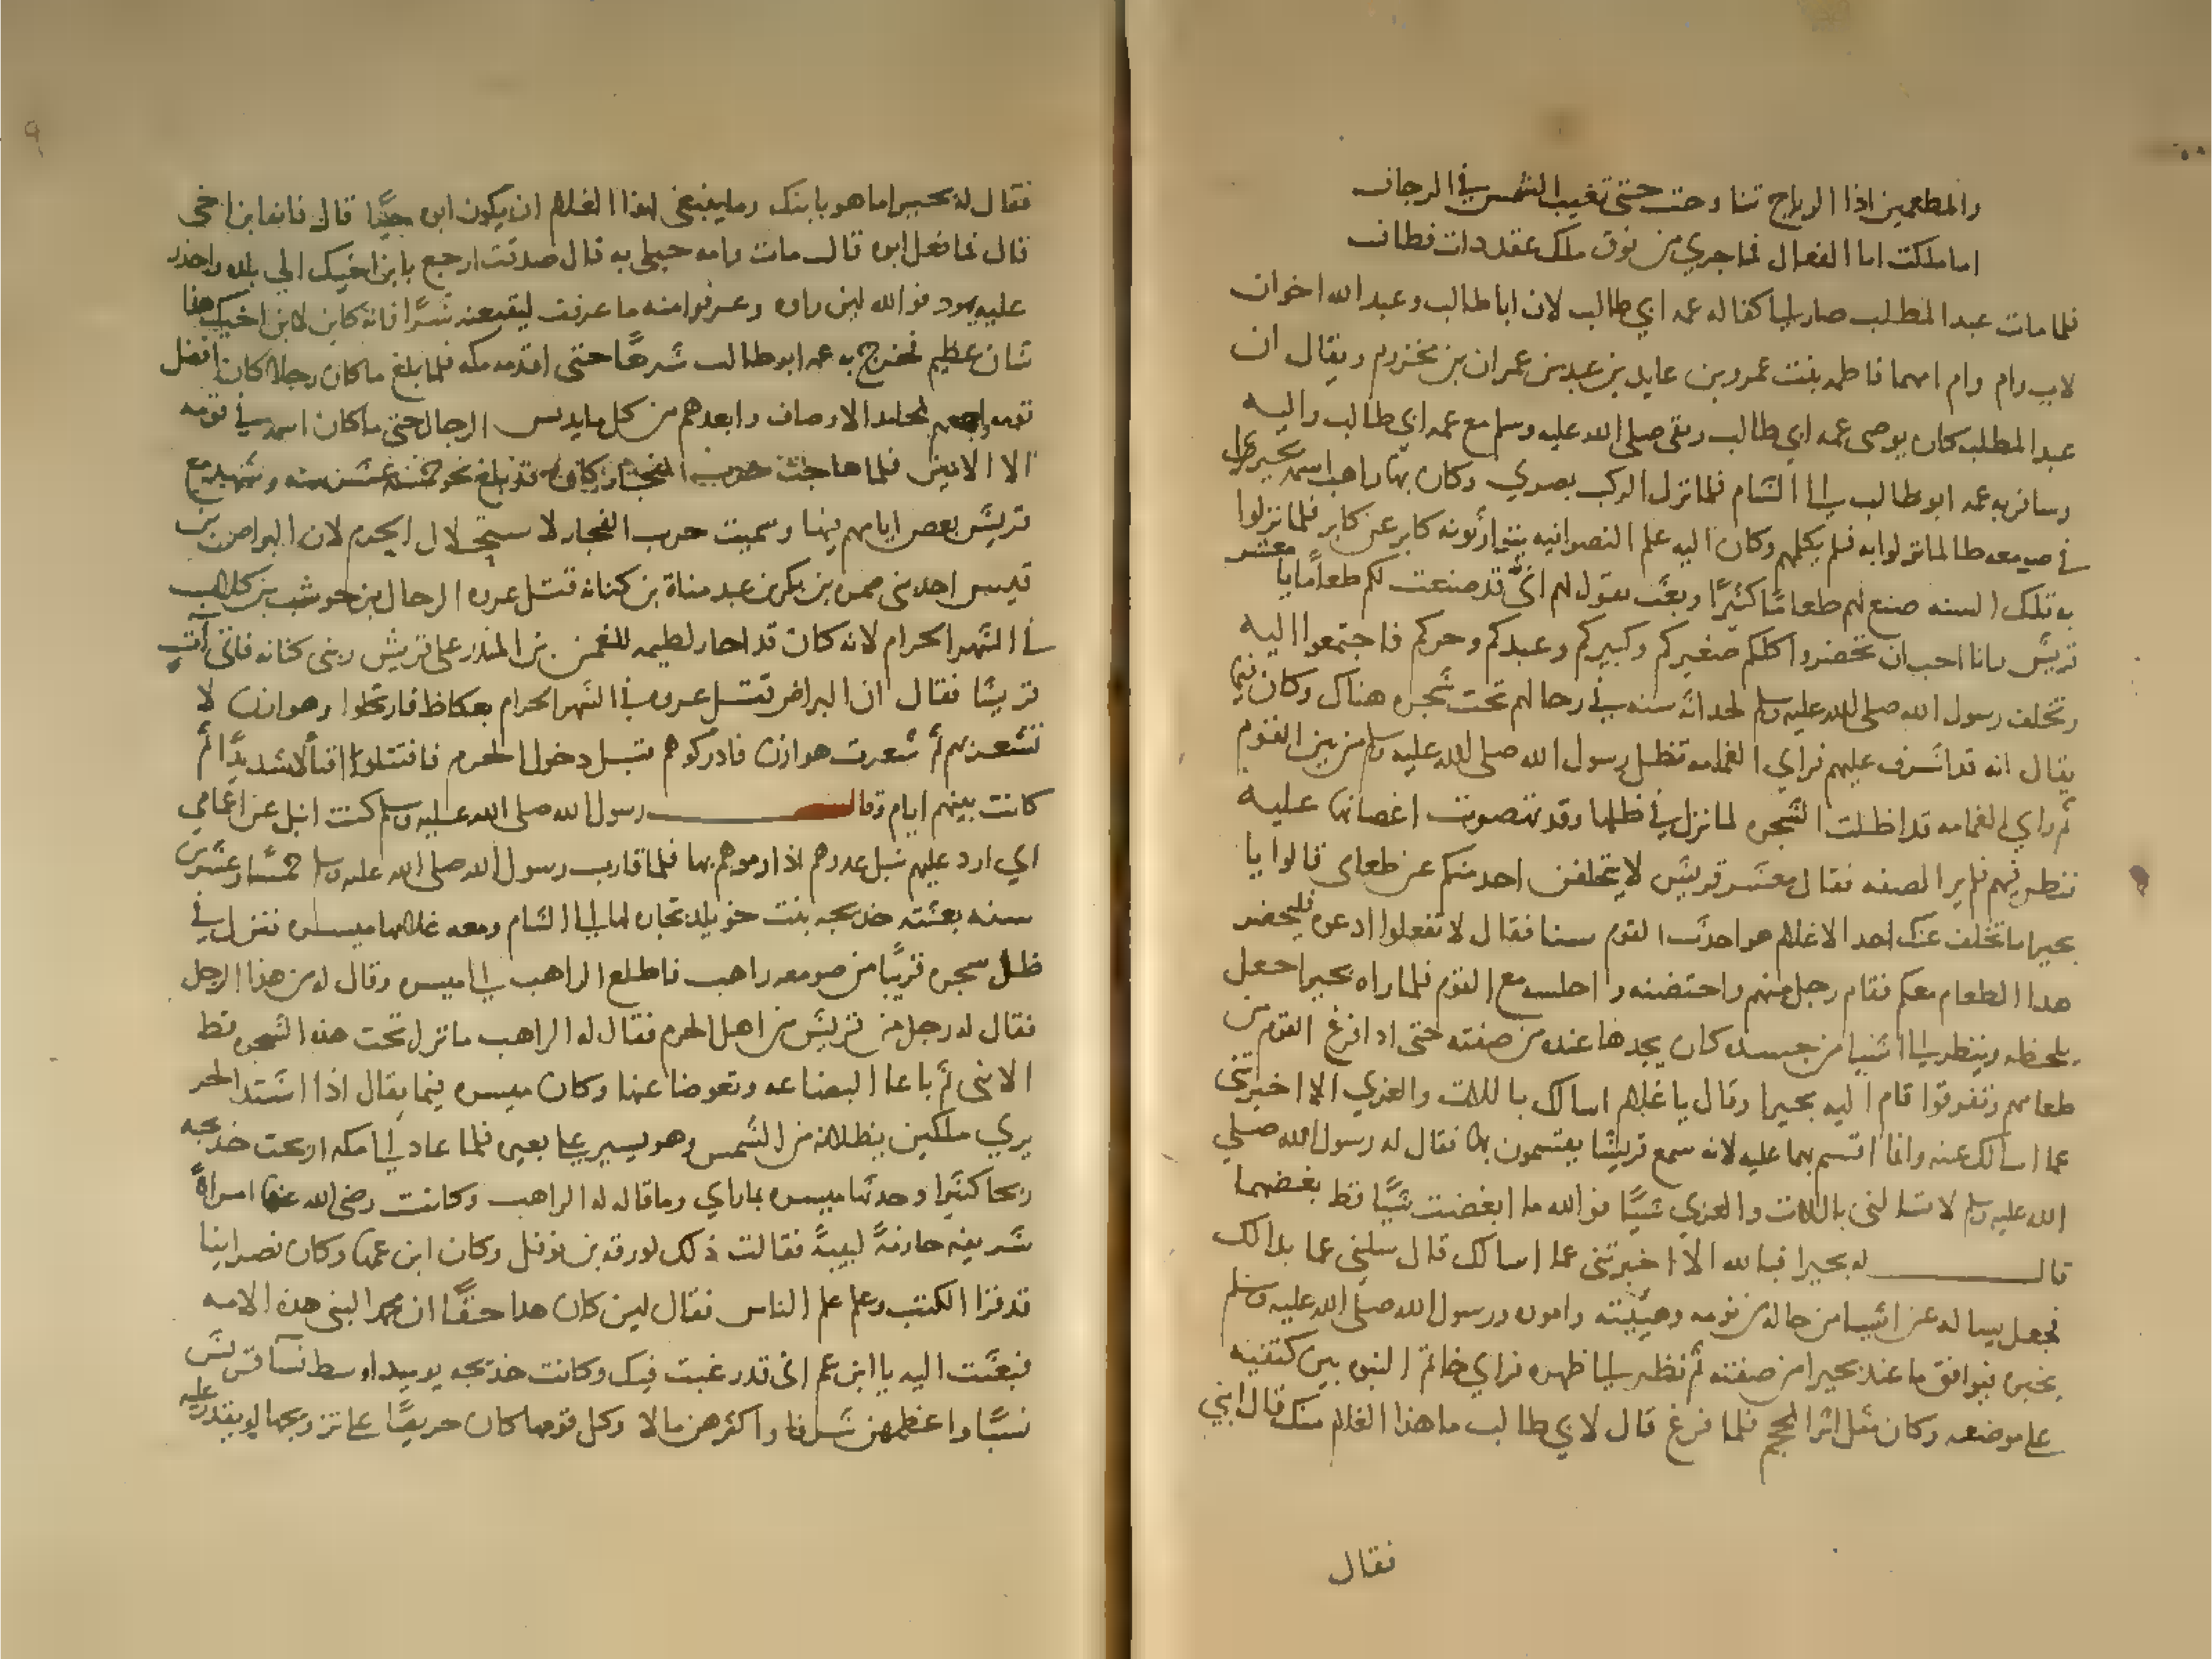 والمطعمين اذا الرياح تناوحت حتى تغيب الشمس في الرجاف
اما هلكت ابا الفعال فما جري من فوق ملك عقد ذات نطاف
فلما مات عبد المطلب صار الى كفاله عمه ابي طالب لان ابا طالب وعبد الله اخوان
لاب وام وام امهما فاطمه بنت عمرو بن عايد بن عبد بن عمران بن مخزوم ويقال ان
عبد المطلب كان يوصى عمه ابي طالب وبقى صلى الله عليه وسلم مع عمه ابي طالب واليه
وسافر به عمه ابو طالب الى الشام فلما نزل الركب بصرى وكان بها راهب اسمه بحيرا
في صومعه طالما نزلوا به فلم يكلمهم وكان اليه علم النصرانيه يتوارثونه كابر عن كابر فلما نزلوا
به تلك السنه صنع لهم طعامًا كثيرًا وبعث يقول لهم اني قد صنعت لكم طعامًا يا معشر
قريش وانا احب ان تحضروا كلكم صغيركم وكبيركم وعبدكم وحركم فاجتمعوا اليه
وتخلف رسول الله صلى الله عليه وسلم لحداثه سنه في رحالهم تحت شجره هناك وكان فيما
يقال انه قد اشرف عليهم فراي الغمامه تظل رسول الله صلى الله عليه وسلم من بين القوم
ثم راي الغمامه قد اظلت الشجره لما نزل في ظلها وقد تهصرت اغصانها عليه
فنظر فيهم فلم ير الصفه فقال معشر قريش لا يتخلفن احد منكم عن طعامي قالوا يا
بحيرا ما تخلف عنك احد الا غلام هو احدث القوم سنا فقال لا تفعلوا ادعوه فليحضر
هدا الطعام معكم فقام رجل منهم واحتضنه واجلسه مع القوم فلما راه بحيرا جعل
يلحظه وينظر الى اشيا من جسده كان يجدها عنده من صفته حتى ادا فرغ القوم من
طعامهم وتفرقوا قام اليه بحيرا وقال يا غلام اسالك باللات والعزي الا اخبرتني
عما اسالك عنه وانما اقسم بهما عليه لانه سمع قريشًا يقسمون بهما فقال له رسول الله صلى
الله عليه وسلم لا تسالني باللات والعزي شيًا فوالله ما ابغضت شيًا قط بغضهما
قال له بحيرا فبالله الا اخبرتني عما اسالك قال سلني عما بدا لك
فجعل يساله عن اشيا من حاله من نومه وهيئته واموره ورسول الله صلى الله عليه وسلم
يخبره فيوافق ما عند بحيرا من صفته ثم نظر الى ظهره فراي خاتم النبوه بين كتفيه
على موضعه وكان مثل اثر المحجم فلما فرغ قال لابي طالب ما هذا الغلام منك قال ابني
فقال
فقال له بحيرا ما هو بابنك وما ينبغي لهذا الغلام ان يكون ابوه حيًا قال فانه ابن اخي
قال فما فعل ابوه قال مات وامه حبلى به قال صدقت ارجع بابن اخيك الي بلده واحذر
عليه يهود فوالله لين راوه وعرفوا منه ما عرفت ليبغنه شرًا فانه كاين لابن اخيك هذا
شان عظيم فخرج به عمه ابو طالب سرعًا حتى اقدمه مكه فلما بلغ ما كان رجلا كان افضل
قومه لمحامد الاوصاف وابعدهم من كل ما يدنس الرجال حتى ما كان اسمه في قومه
الا الامين فلما هاجت حرب الفجار وكان قد بلغ نحو خمسه عشر سنه وشهد مع
قريش بعض ايامهم فيها وسميت حرب الفجار لاستحلال الحرم لان البراض بن
قيس احد بني ضمره بن بكر بن عبد مناة بن كنانه قتل عروه الرحال بن حوشب بن كلاب
في الشهر الحرام لانه كان قد اجار لطيمه للنعمن بن المنذر على قريش وبني كنانه فاتى آت
قريشًا فقال ان البراض قتل عروه في الشهر الحرام بعكاظ فارتحلوا وهوازن لا
تشعر بهم ثم شعرت هوازن فادركوهم قبل دخول الحرم فاقتتلوا قتالا شديدًا ثم
كانت بينهم ايام وقال رسول الله صلى الله عليه وسلم كنت انبل عن اعمامي
اي ارد عليهم نبل عدوهم اذا رموهم بها فلما قارب رسول الله صلى الله عليه وسلم خمسًا وعشرين
سنه بعثته خديجه بنت خويلد بتجاره لها الى الشام ومعه غلامها ميسره فنزل في
ظل شجره قريبًا من صومعه راهب فاطلع الراهب الى ميسره وقال له من هذا الرجل
فقال له رجل من قريش من اهل الحرم فقال له الراهب ما نزل تحت هذه الشجره قط
الا نبي ثم باعا البضاعه وتعوضا عنها وكان ميسره فيما يقال اذا اشتد الحر
يري ملكين يظلانه من الشمس وهو يسير على بعيره فلما عاد الى مكه اربحت خديجه
ربحا كثيرا وحدثها ميسره بما راي وما قاله له الراهب وكانت رضى الله عنها امراةً
شريفه حازمةً لبيبةً فقالت ذلك لورقه بن نوفل وكان ابن عمها وكان نصرانيا
قد قرا الكتب وعلم علم الناس فقال لين كان هدا حقًا ان محمدا لنبي هذه الامه
فبعثت اليه يا ابن عم اني قد رغبت فيك وكانت خديجه يوميد اوسط نسآ قريش
نسبًا واعظمهن شرفا واكثرهن مالا وكل قومها كان حريصًا على تزويجها لو يقدر عليه